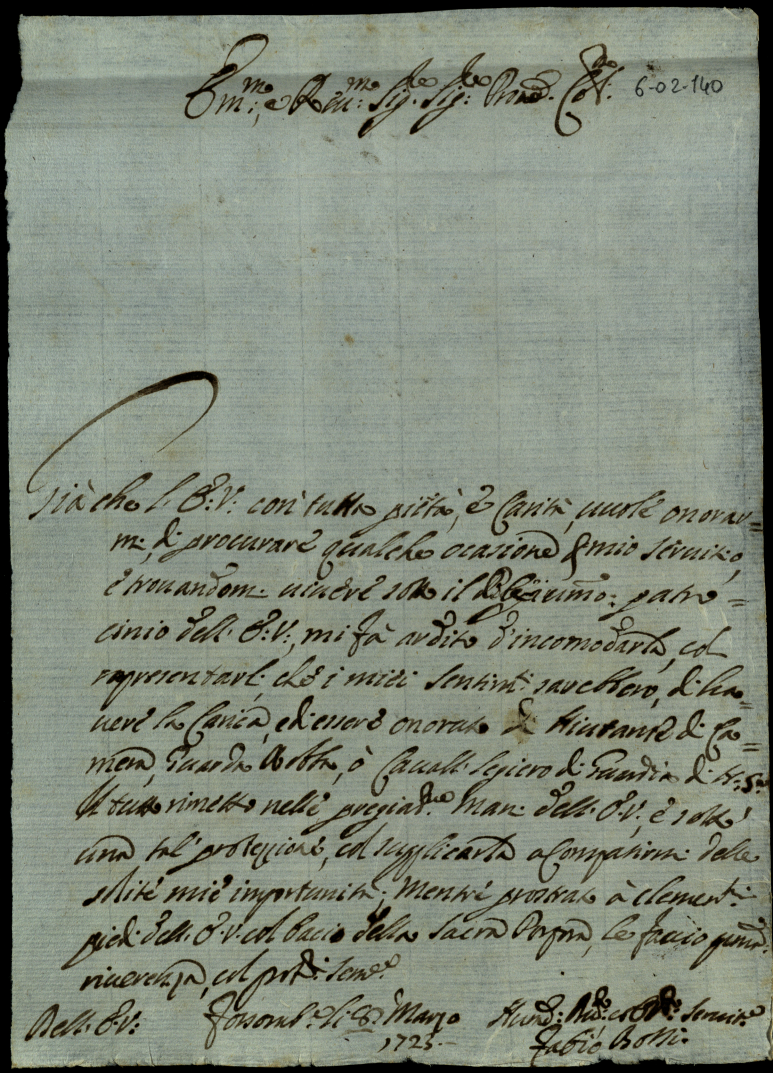 Em:mo e Reu:mo Sig:re Sig:re Prone Col:mo
6-02-140
Già che l'E:V: con tutta pietà, e Carità, uuole onorar=
mi, di procurare qualche ocasione p mio seruitio,
e trouandomi uiuere sotto il patro=
cinio dell'E:V:, mi fà ardito d'incomodarla, col
rapresentarli, che i miei sentimti sarebbero, di ha=
uere la Carica, ed essere onorato di Aiutante di Ca=
mera, Guarda Robba, ò Cauall: legiero di Guardia di N:Sre
Il tutto rimetto nelle pregiatme Mani dell'E:V:, e sotto
una tal protezzione, col suplicarla a Compatirmi delle
solite mie importunità; Mentre prostrato à clementmi
piedi dell'E:V: col bacio della Sacra Porpora, le faccio
riuerenza, col
Dell'E:V:
Fossombe li 8: Marzo
1725.
Humo: Deuo: et Obo: Seruite
Fabio